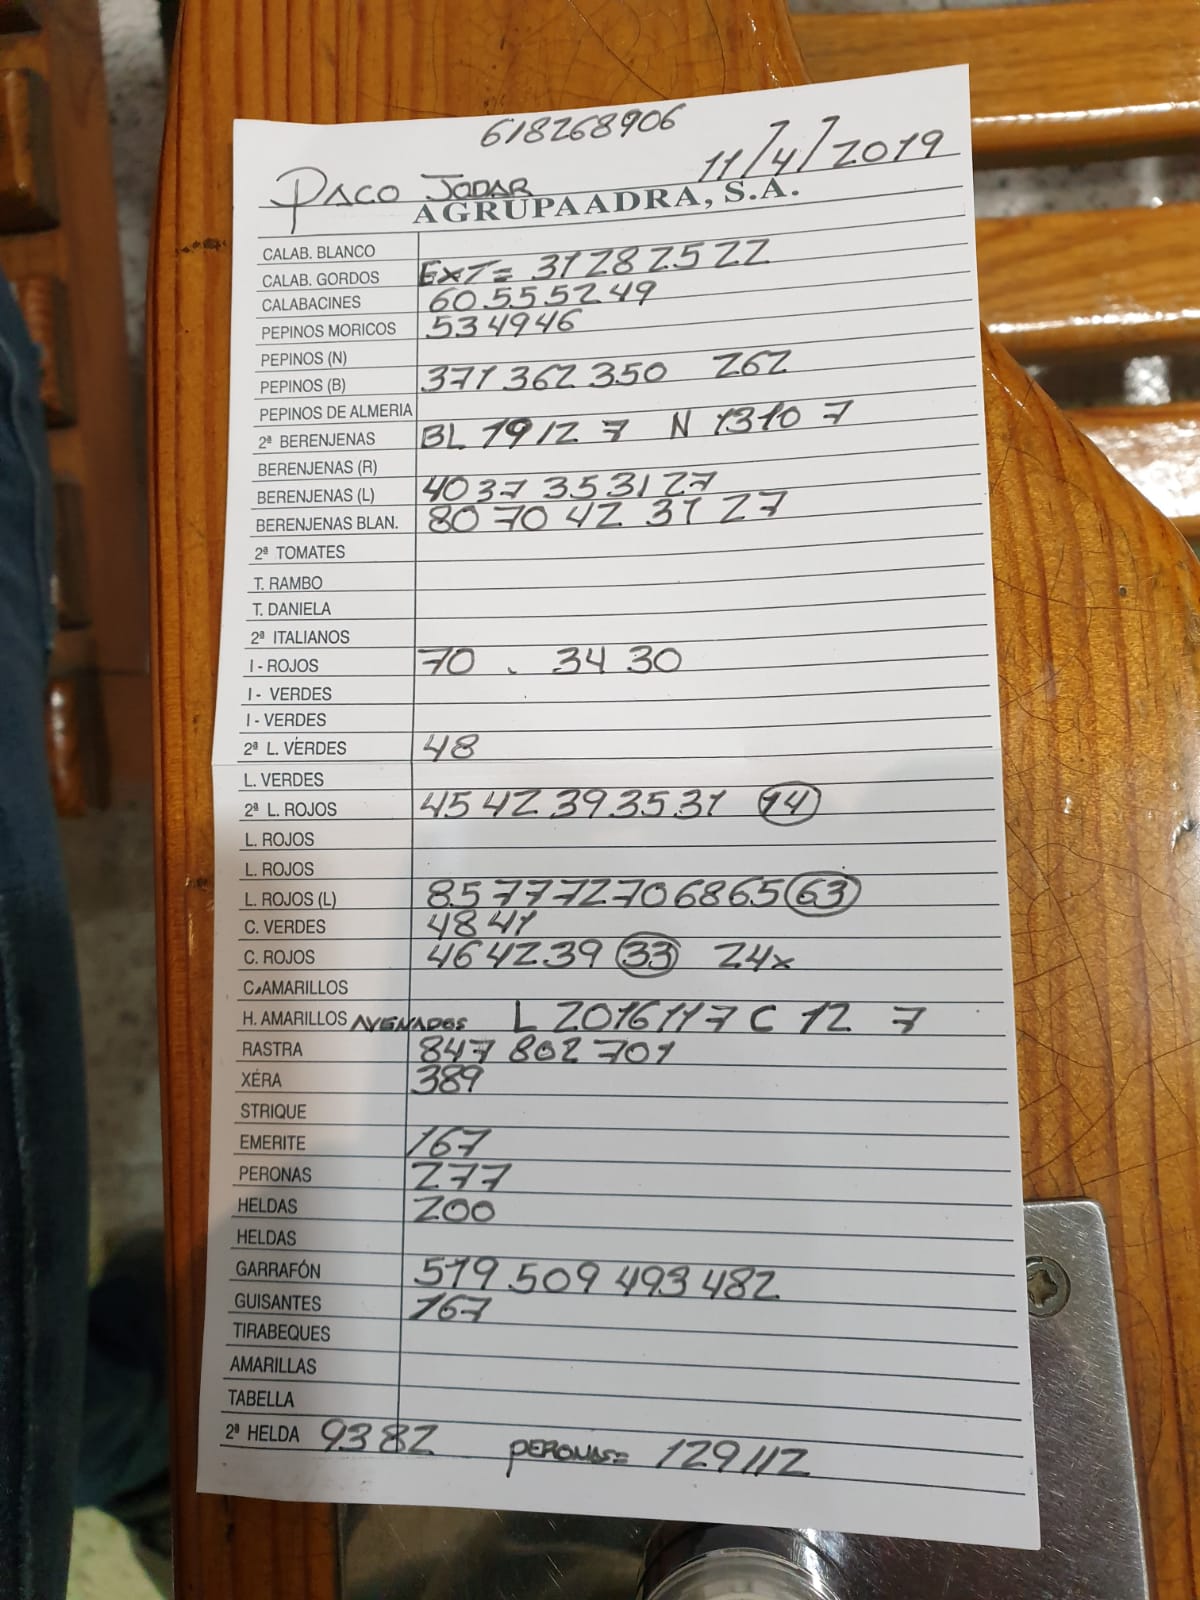 618268906
PACO JODAR 11/4/2019
AGRUPAADRA, S.A.
CALAB. BLANCO
CALAB. GORDOS EXT= 31 28 25 22
CALABACINES 60 55 52 49
PEPINOS MORICOS 53 49 46
PEPINOS (N)
PEPINOS (B) 371 362 350 262
PEPINOS DE ALMERIA
2ª BERENJENAS BL 19 12 7 N 13 10 7
BERENJENAS (R)
BERENJENAS (L) 40 37 35 31 27
BERENJENAS BLAN. 80 70 42 31 27
2ª TOMATES
T. RAMBO
T. DANIELA
2ª ITALIANOS
I - ROJOS 70 . 34 30
I - VERDES
I - VERDES
2ª L. VERDES 48
L. VERDES
2ª L. ROJOS 45 42 39 35 31 14
L. ROJOS
L. ROJOS
L. ROJOS (L) 85 77 72 70 68 65 63
C. VERDES 48 41
C. ROJOS 46 42 39 33 24x
C. AMARILLOS
H. AMARILLOS AVENADOS L 20 16 11 7 C 12 7
RASTRA 847 802 701
XÉRA 389
STRIQUE
EMERITE 167
PERONAS 277
HELDAS 200
HELDAS
GARRAFÓN 519 509 493 482
GUISANTES 167
TIRABEQUES
AMARILLAS
TABELLA
2ª HELDA 93 82 PERONAS= 129 112